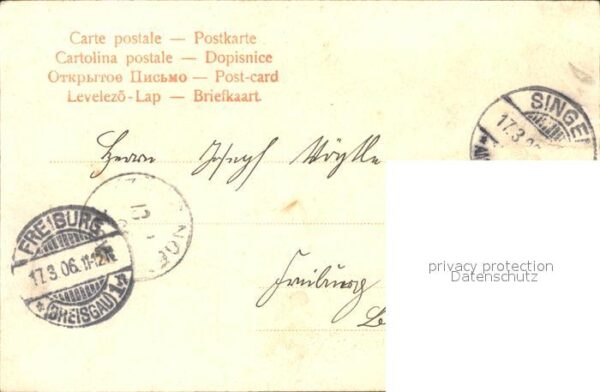 Carte postale — Postkarte
Cartolina postale — Dopisnice
Открытое Письмо — Post-card
Levelező-Lap — Briefkaart.
SINGEN
17.3.06
Herrn Joseph Vögtle
FREIBURG
17.3.06.11-12N
(BREISGAU)
Freiburg
privacy protection
Datenschutz